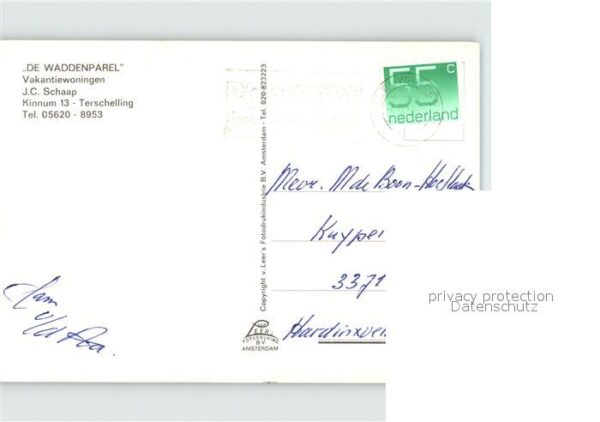 „DE WADDENPAREL"
Vakantiewoningen
J.C. Schaap
Kinnum 13 - Terschelling
Tel. 05620 - 8953
Copyright v. Leer's Fotodrukindustrie B.V. Amsterdam - Tel. 020-823223
55 c
nederland
Mevr. M de Boon-
Kuyper
3371
Hardinxve
van
LEER
FOTODRUKIND
B.V.
AMSTERDAM
privacy protection
Datenschutz